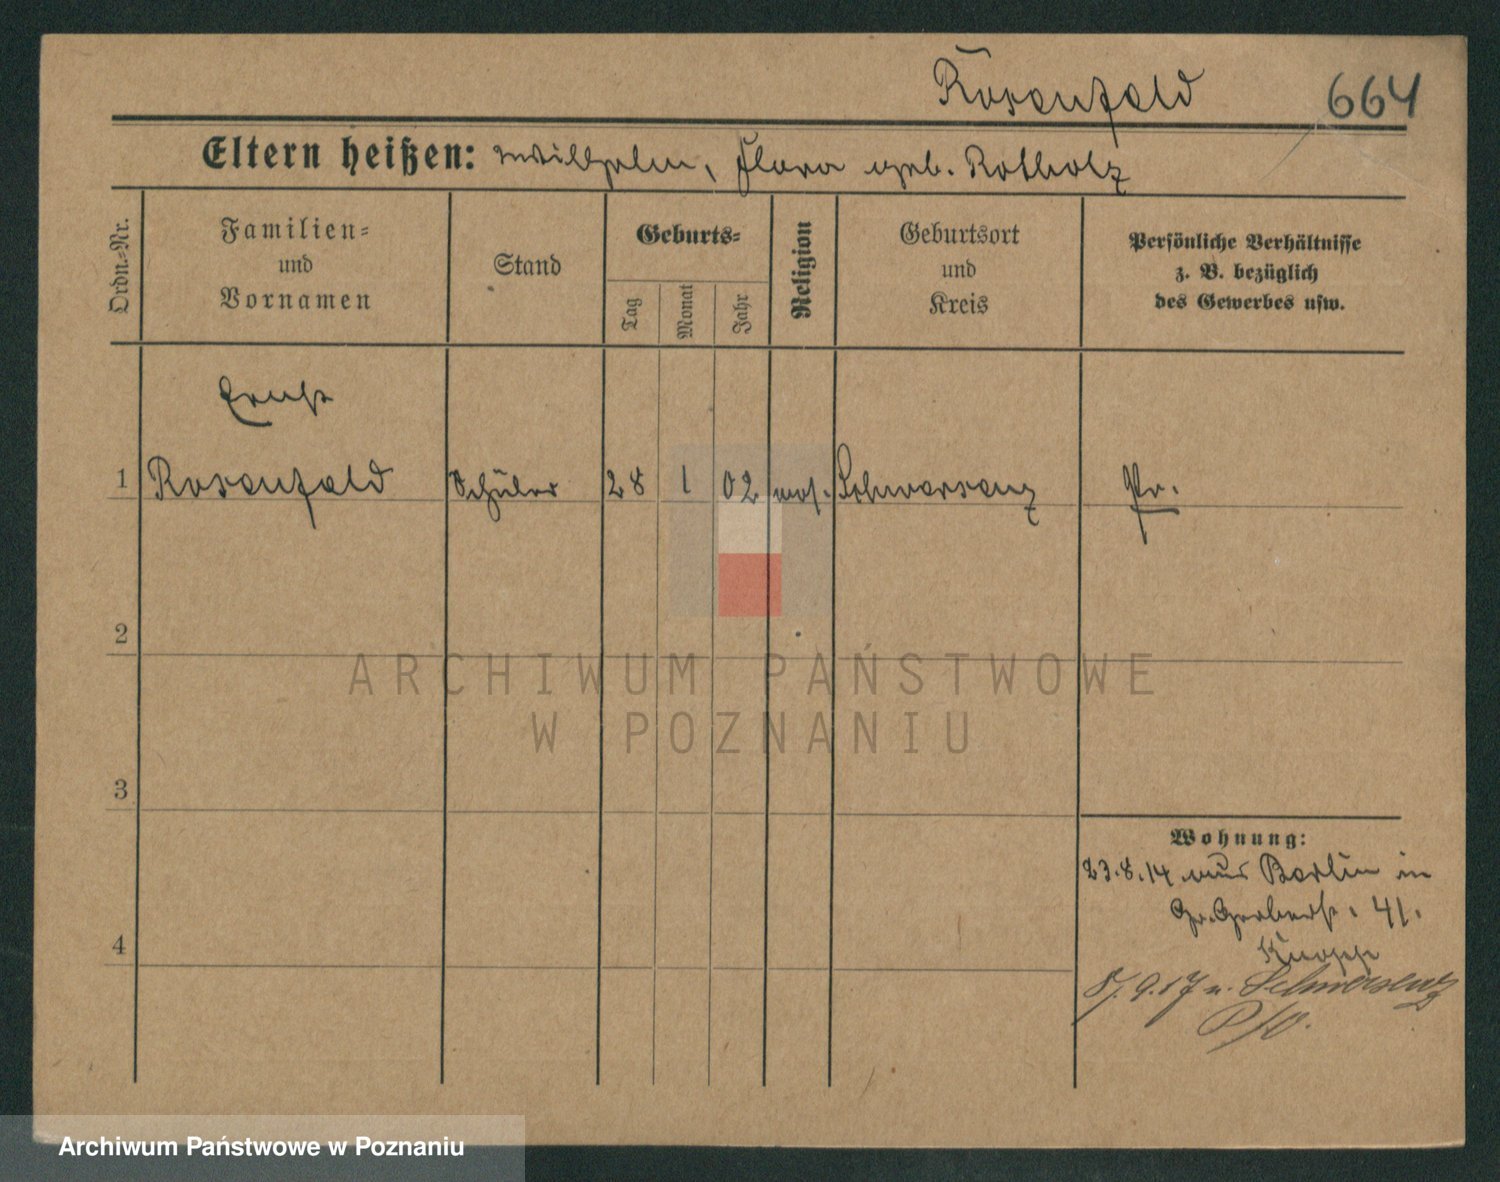 Rosenfeld 664
Eltern heißen: Wilhelm, Flora geb. Rotholz
Ordn.=Nr.
Familien=
und
Vornamen
Stand
Geburts=
Tag
Monat
Jahr
Religion
Geburtsort
und
Kreis
Persönliche Verhältnisse
z. B. bezüglich
des Gewerbes usw.
Ernst
1 Rosenfeld Schüler 28 1 02 mos. Schwersenz Pr.
2
ARCHIWUM PAŃSTWOWE
W POZNANIU
3
Wohnung:
23.8.14 aus Berlin in
Gr. Gerberst. 41.
4
8/9.17 n. Schwersenz
Archiwum Państwowe w Poznaniu